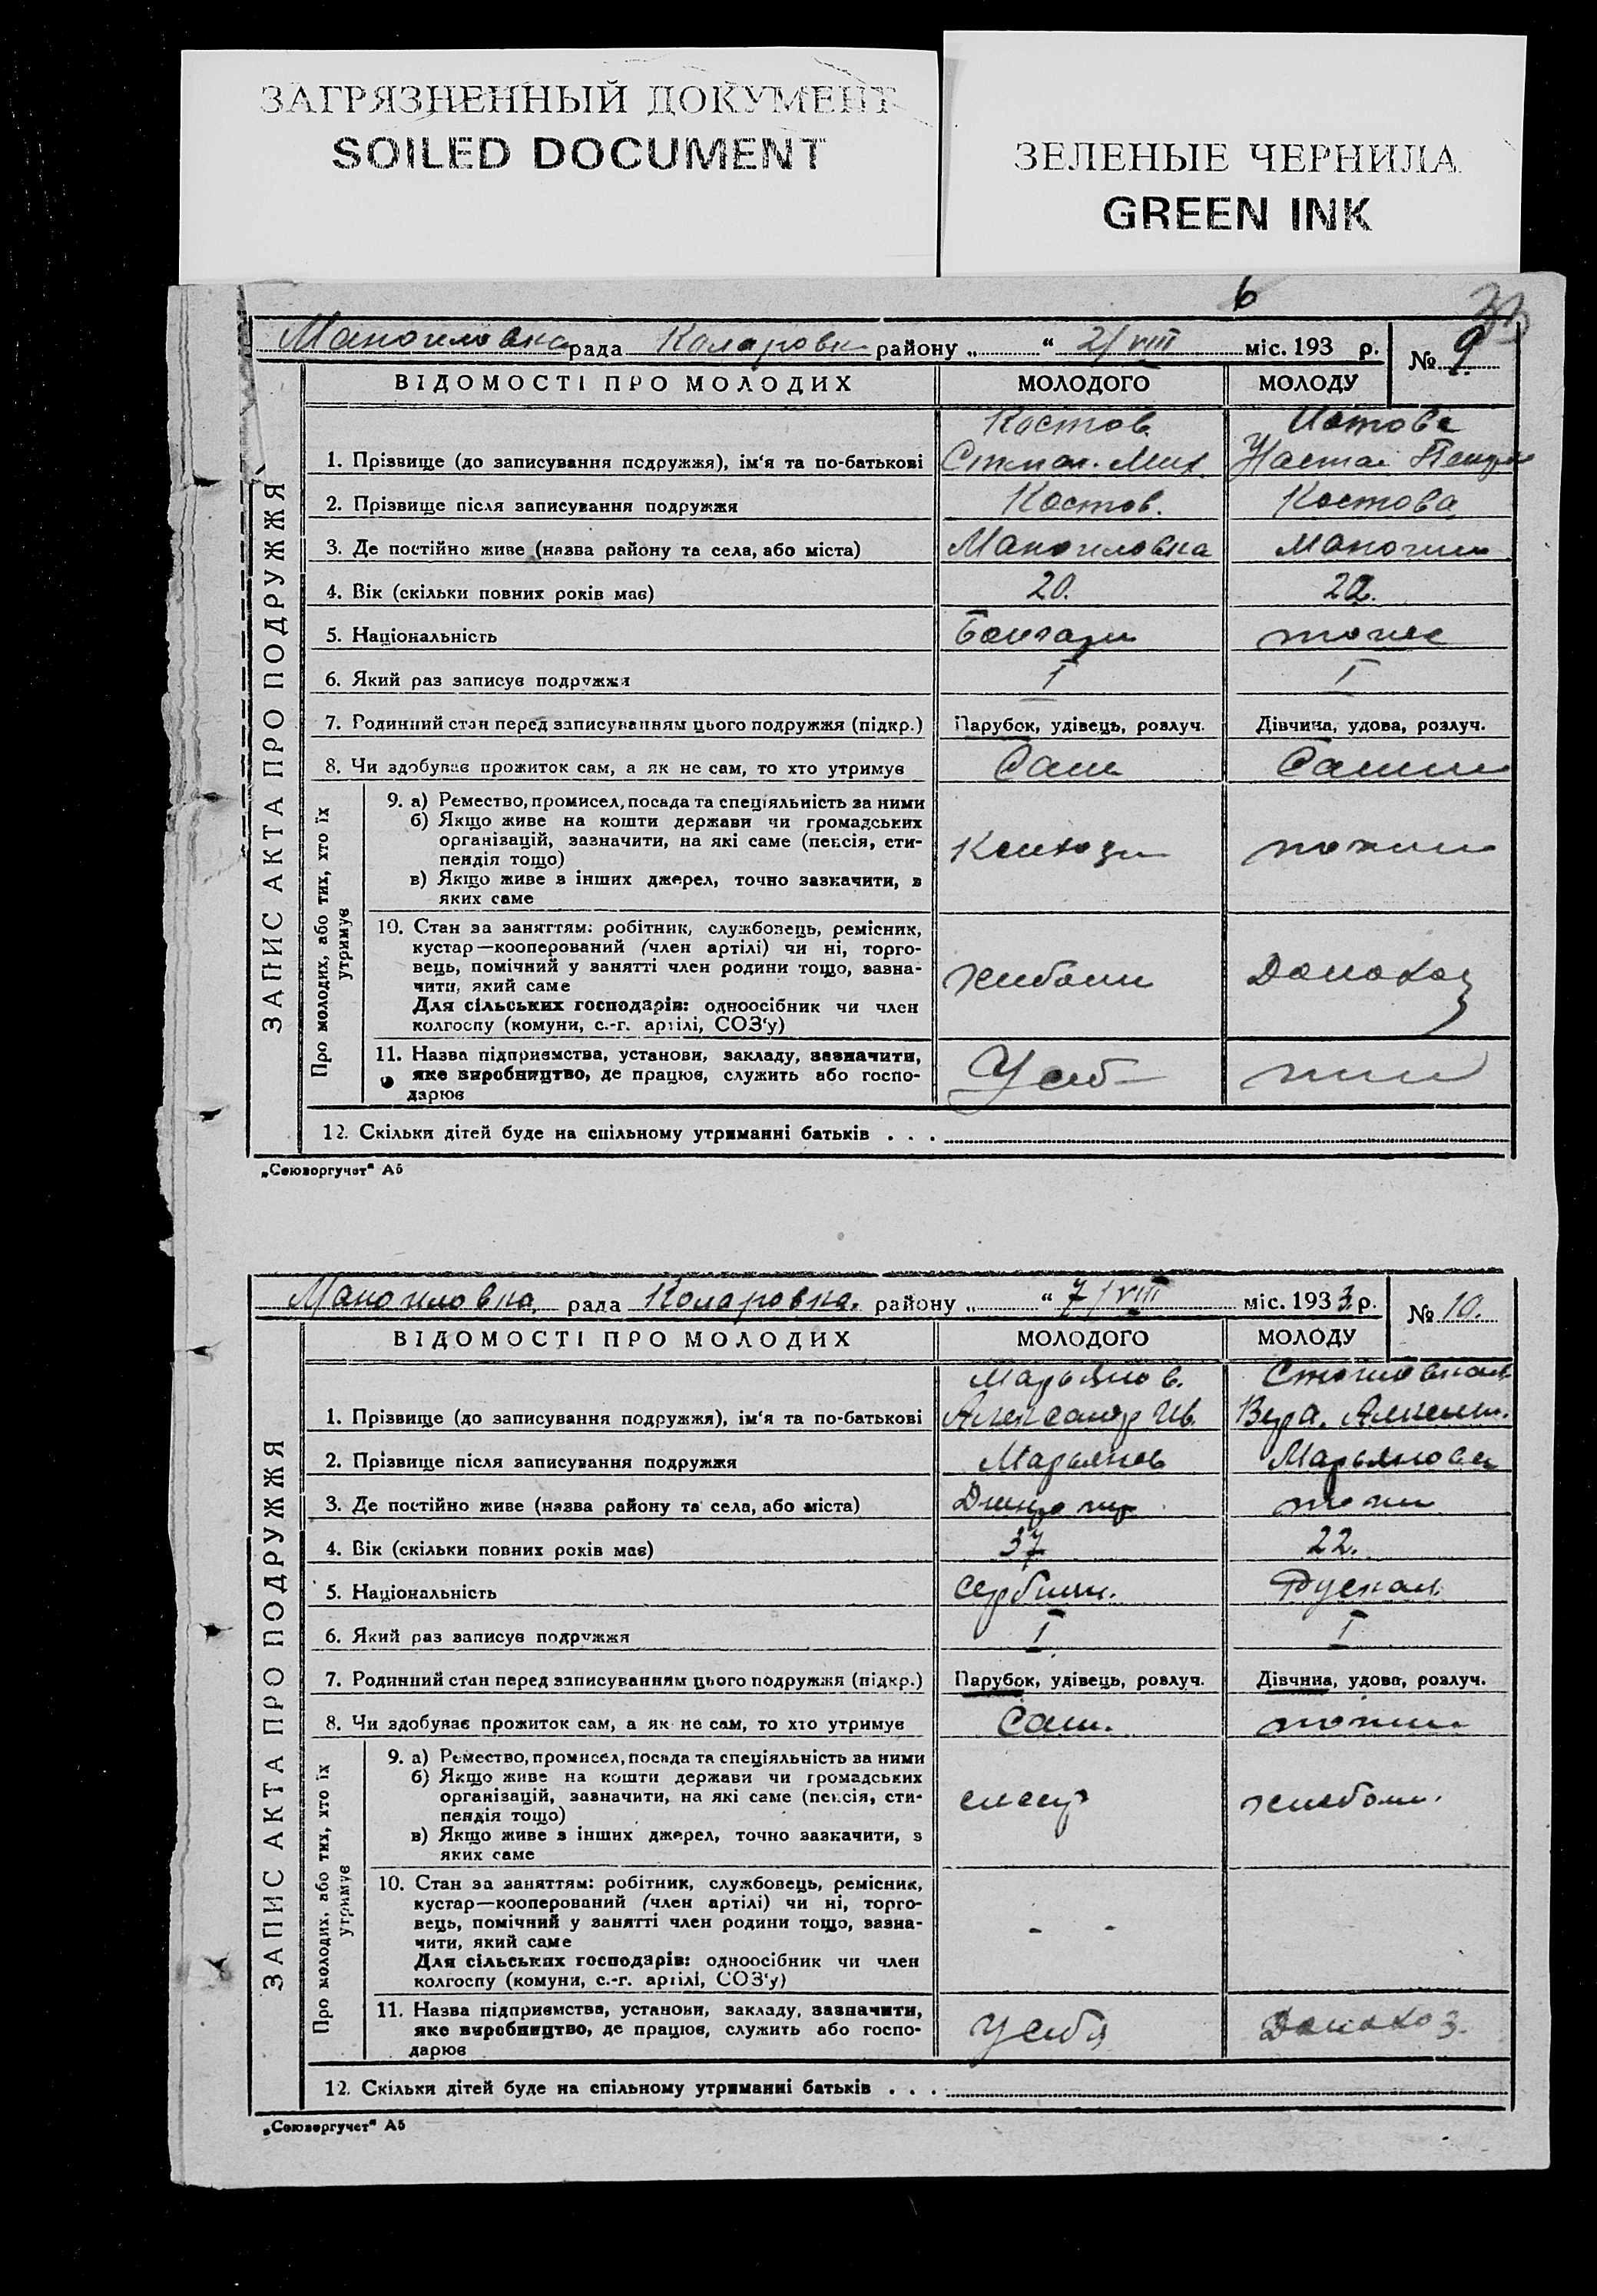 ЗАГРЯЗНЕННЫЙ ДОКУМЕНТ
SOILED DOCUMENT
ЗЕЛЕНЫЕ ЧЕРНИЛА
GREEN INK
6
33
рада района „ “ 2/VIII міс. 193 р. № 9
ВІДОМОСТІ ПРО МОЛОДИХ МОЛОДОГО МОЛОДУ
ЗАПИС АКТА ПРО ПОДРУЖЖЯ
Костов
1. Прізвище (до записування подружжя), ім‘я та по-батькові
2. Прізвище після записування подружжя Костов. Костова
3. Де постійно живе (назва району та села, або міста)
4. Вік (скільки повних років має) 20.
5. Національність
6. Який раз записує подружжя I I
7. Родинний стан перед записуванням цього подружжя (підкр.) Парубок, удівець, розлуч. Дівчина, удова, розлуч.
8. Чи здобуває прожиток сам, а як не сам, то хто утримує Сам
Про молодих, або тих, хто їх утримує
9. а) Ремество, промисел, посада та спеціяльність за ними
б) Якщо живе на кошти держави чи громадських
організацій, зазначити, на які саме (пенсія, сти-
пендія тощо)
в) Якщо живе з інших джерел, точно зазначити, з
яких саме
10. Стан за заняттям: робітник, службовець, ремісник,
кустар—кооперований (член артілі) чи ні, торго-
вець, помічний у занятті член родини тощо, зазна-
чити, який саме
Для сільських господарів: одноосібник чи член
колгоспу (комуни, с.-г. артілі, СОЗ‘у)
11. Назва підприємства, установи, закладу, зазначити,
яке виробництво, де працює, служить або госпо-
дарює
12. Скільки дітей буде на спільному утриманні батьків . . .
„Союзоргучет“ А5
рада Коларовка. району „ “ 7/VIII міс. 1933 р. № 10.
ВІДОМОСТІ ПРО МОЛОДИХ МОЛОДОГО МОЛОДУ
ЗАПИС АКТА ПРО ПОДРУЖЖЯ
Марьянов.
1. Прізвище (до записування подружжя), ім‘я та по-батькові Александр Ив. Вера
2. Прізвище після записування подружжя Марьянов Марьянова
3. Де постійно живе (назва району та села, або міста)
4. Вік (скільки повних років має) 37 22.
5. Національність Сербин. Руская
6. Який раз записує подружжя I I
7. Родинний стан перед записуванням цього подружжя (підкр.) Парубок, удівець, розлуч. Дівчина, удова, розлуч.
8. Чи здобуває прожиток сам, а як не сам, то хто утримує Сам.
Про молодих, або тих, хто їх утримує
9. а) Ремество, промисел, посада та спеціяльність за ними
б) Якщо живе на кошти держави чи громадських
організацій, зазначити, на які саме (пенсія, сти-
пендія тощо)
в) Якщо живе з інших джерел, точно зазначити, з
яких саме
10. Стан за заняттям: робітник, службовець, ремісник,
кустар—кооперований (член артілі) чи ні, торго-
вець, помічний у занятті член родини тощо, зазна-
чити, який саме
Для сільських господарів: одноосібник чи член
колгоспу (комуни, с.-г. артілі, СОЗ‘у)
11. Назва підприємства, установи, закладу, зазначити,
яке виробництво, де працює, служить або госпо-
дарює
Домохоз.
12. Скільки дітей буде на спільному утриманні батьків . . .
„Союзоргучет“ А5